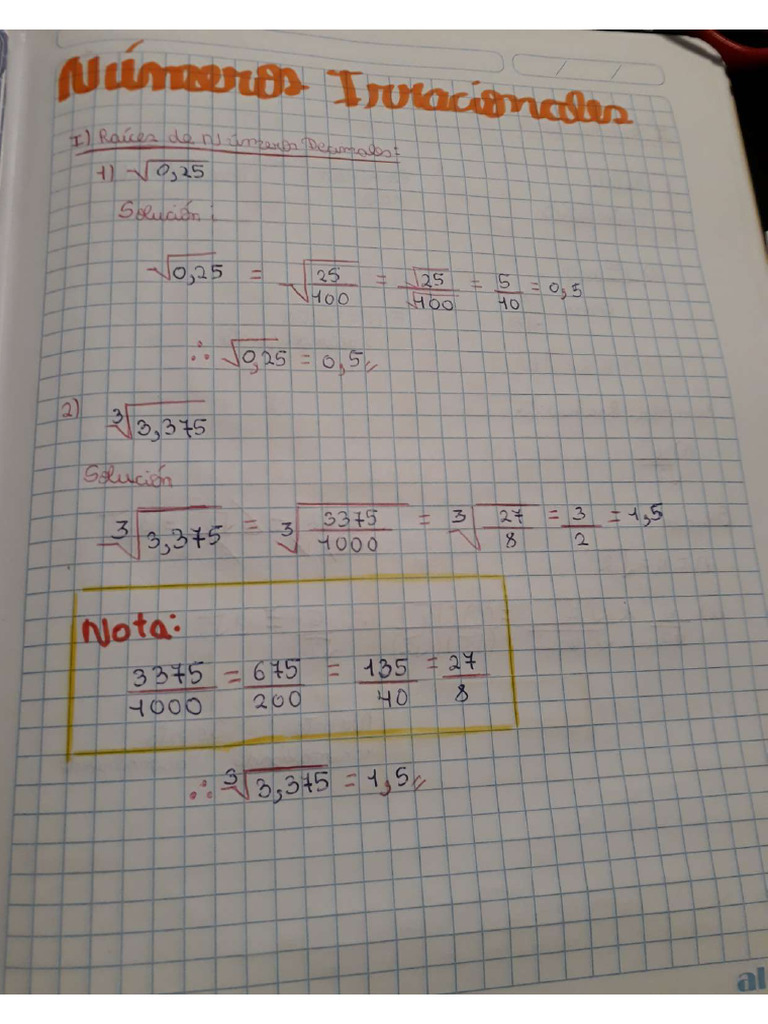 Números Irracionales
I) Raíces de Números Decimales:
1) √0,25
Solución:
√0,25 = √(25/100) = √25/√100 = 5/10 = 0,5
∴ √0,25 = 0,5//
2) ∛3,375
Solución
∛3,375 = ∛(3375/1000) = ∛(27/8) = 3/2 = 1,5
Nota:
3375/1000 = 675/200 = 135/40 = 27/8
∴ ∛3,375 = 1,5//
al